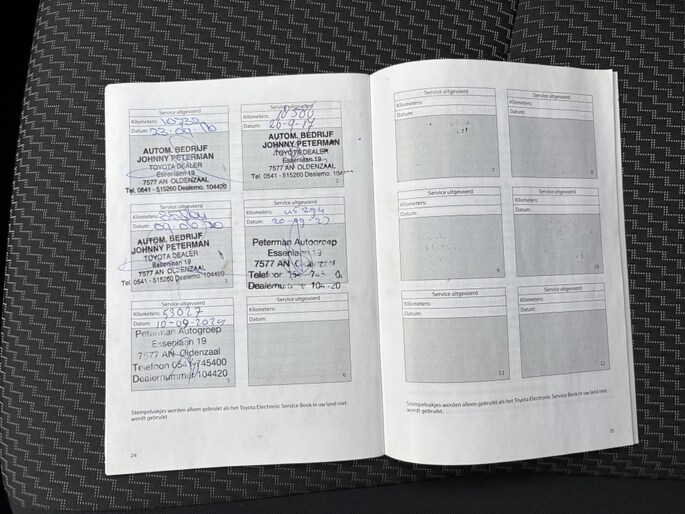 Service uitgevoerd
Kilometers:
Datum:
AUTOM. BEDRIJF
JOHNNY PETERMAN
TOYOTA DEALER
Essenlaan 19
7577 AN OLDENZAAL
Tel. 0541 - 515260 Dealerno. 104420
Service uitgevoerd
Kilometers:
Datum: 20-9-17
AUTOM. BEDRIJF
JOHNNY PETERMAN
TOYOTA DEALER
Essenlaan 19
7577 AN OLDENZAAL
Tel. 0541 - 515260 Dealerno. 104
2
Service uitgevoerd
Kilometers:
Datum:
AUTOM. BEDRIJF
JOHNNY PETERMAN
TOYOTA DEALER
Essenlaan 19
7577 AN OLDENZAAL
Tel. 0541 - 515260 Dealerno. 104420
3
Service uitgevoerd
Kilometers: 45294
Datum:
Peterman Autogroep
Essenlaan 19
7577 AN Oldenzaal
Telefoon
Dealernummer
Service uitgevoerd
Kilometers: 53027
Datum: 10-09-2024
Peterman Autogroep
Essenlaan 19
7577 AN Oldenzaal
Telefoon 0541-745400
Dealernummer 104420
5
Service uitgevoerd
Kilometers:
Datum:
6
Stempelvakjes worden alleen gebruikt als het Toyota Electronic Service Book in uw land niet
wordt gebruikt.
24
Service uitgevoerd
Kilometers:
Datum:
7
Service uitgevoerd
Kilometers:
Datum:
Service uitgevoerd
Kilometers:
Datum:
9
Service uitgevoerd
Kilometers:
Datum:
10
Service uitgevoerd
Kilometers:
Datum:
11
Service uitgevoerd
Kilometers:
Datum:
12
Stempelvakjes worden alleen gebruikt als het Toyota Electronic Service Book in uw land niet
wordt gebruikt.